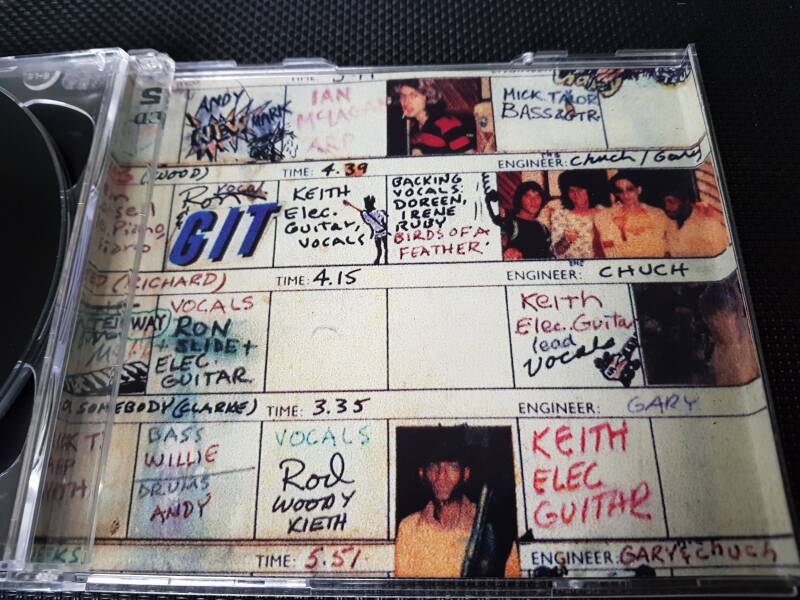 TIME: 3.41
ENGINEER:
ANDY
MARK
IAN
McLAGAN
ARP
MICK. TAYLOR
BASS & GTR
(WOOD)
TIME: 4.39
ENGINEER: Chuch / Gary
Ron vocal
GIT
KEITH
Elec.
Guitar,
VOCALS
BACKING
VOCALS:
DOREEN,
IRENE
RUBY
BIRDS OF A
FEATHER.
Piano
(RICHARD)
TIME: 4.15
ENGINEER: CHUCH
WAY
VOCALS
RON
+ SLIDE +
ELEC.
GUITAR.
Keith
Elec. Guitar
lead
Vocals
SOMEBODY (CLARKE)
TIME: 3.35
ENGINEER: GARY
BASS
WILLIE
DRUMS
ANDY
VOCALS
Rod
WOODY
KIETH
KEITH
ELEC
GUITAR
TIME: 5.51
ENGINEER: GARY & Chuch